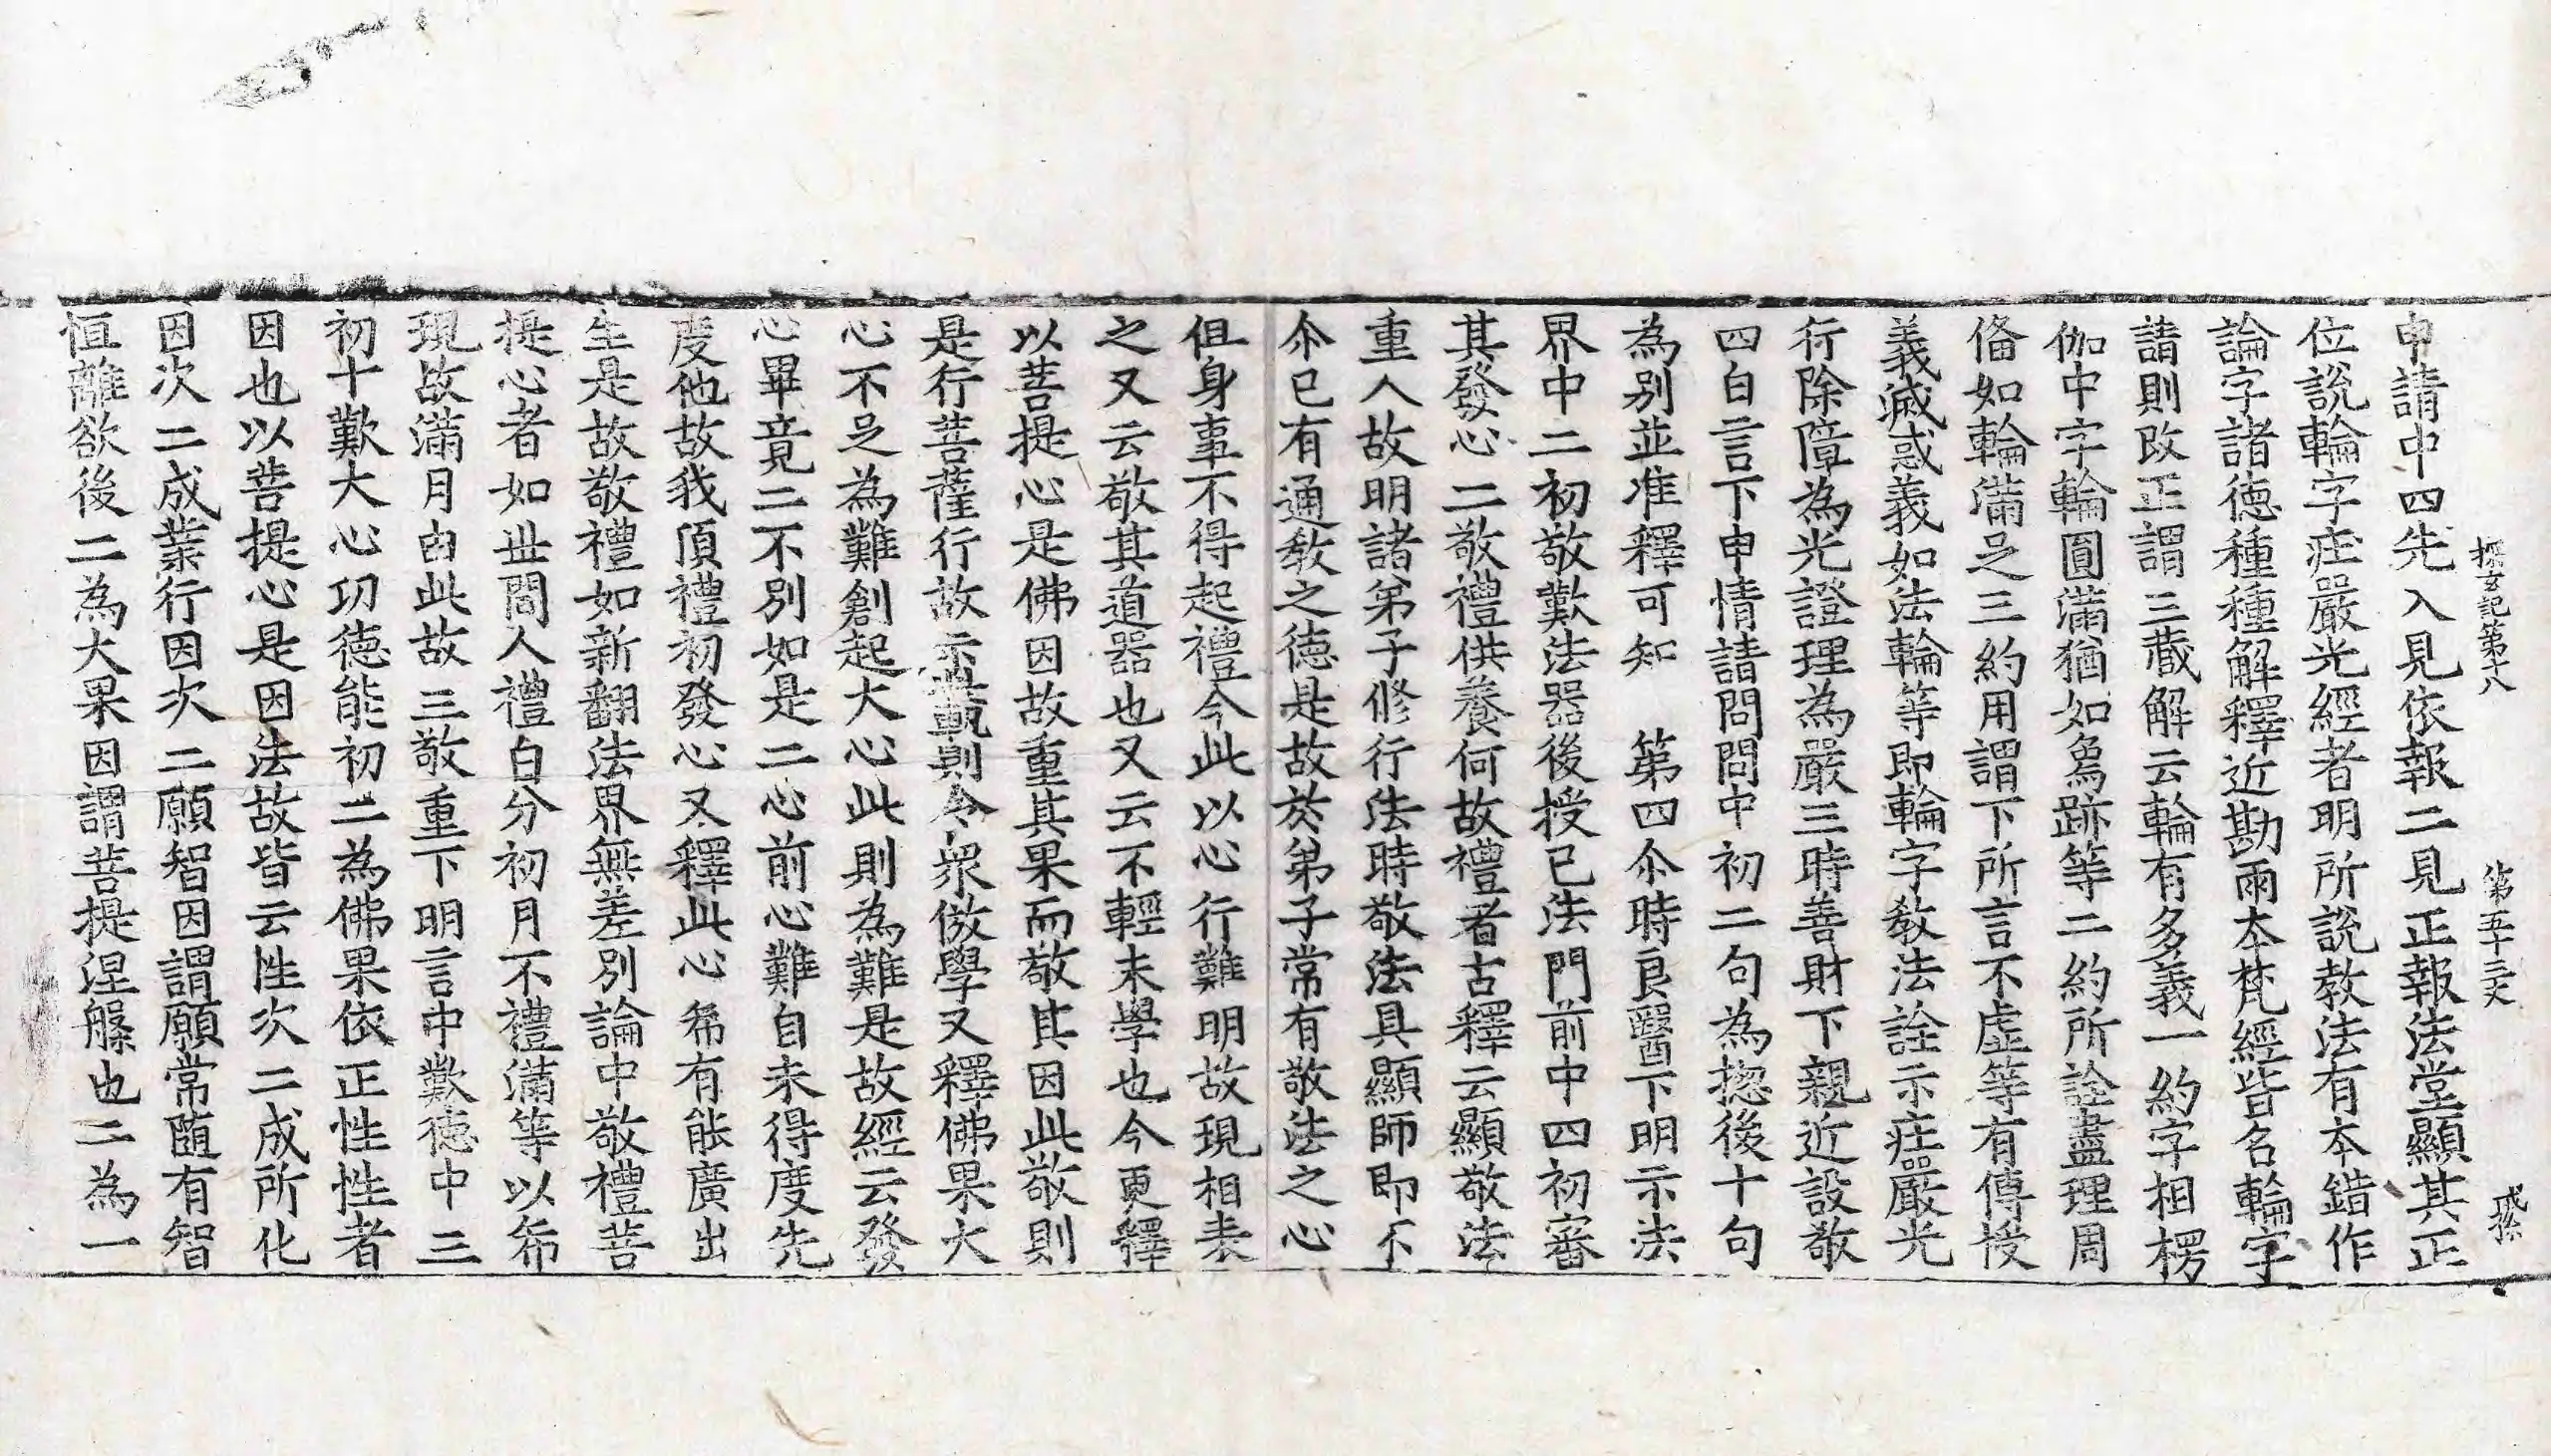 探玄記第十八　第五十三丈
申請中四先入見依報二見正報法堂顯其正
位說輪字庄嚴光經者明所說教法有本錯作
論字諸德種種解釋近勘兩本梵經皆名輪字
請則改正謂三藏解云輪有多義一約字相楞
伽中字輪圓滿猶如象跡等二約所詮盡理周
俻如輪滿足三約用謂下所言不虛等有傳授
義滅惑義如法輪等即輪字教法詮示庄嚴光
行除障為光證理為嚴三時善財下親近設敬
四白言下申情請問問中初二句為揔後十句
為別並准釋可知　第四尒時良醫下明示法
界中二初敬歎法器後授已法門前中四初審
其發心二敬禮供養何故禮者古釋云顯敬法
重人故明諸弟子修行法時敬法具顯師即不
尒已有通教之德是故於弟子常有敬法之心
但身事不得起禮今此以心行難明故現相表
之又云敬其道器也又云不輕未學也今更釋
以菩提心是佛因故重其果而敬其因此敬則
是行菩薩行故示世軌則令衆倣學又釋佛果大
心不足為難創起大心此則為難是故經云發
心畢竟二不別如是二心前心難自未得度先
度他故我頂禮初發心又釋此心希有能廣出
生是故敬禮如新翻法界無差別論中敬禮菩
提心者如世間人禮白分初月不禮滿等以希
現故滿月由此故三敬重下明言中歎德中三
初十歎大心功德能初二為佛果依正性性者
因也以菩提心是因法故皆云性次二成所化
因次二成業行因次二願智因謂願常隨有智
恒離欲後二為大果因謂菩提涅槃也二為一